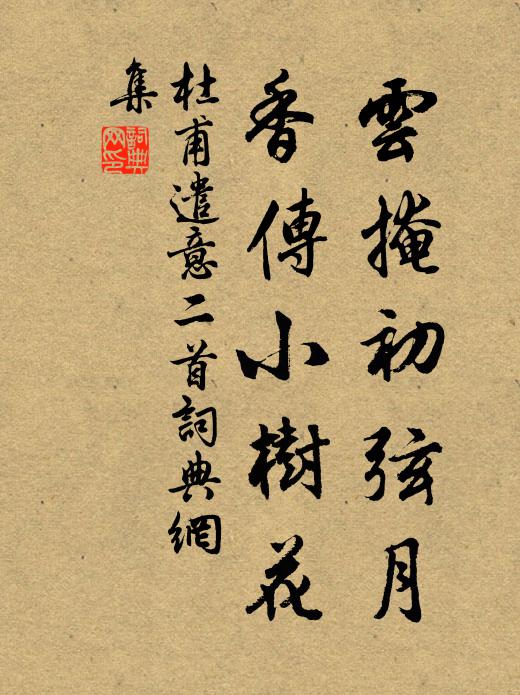 雲掩初弦月
香傳小樹花
杜甫遣意二首詞典網
集
詞典
网印